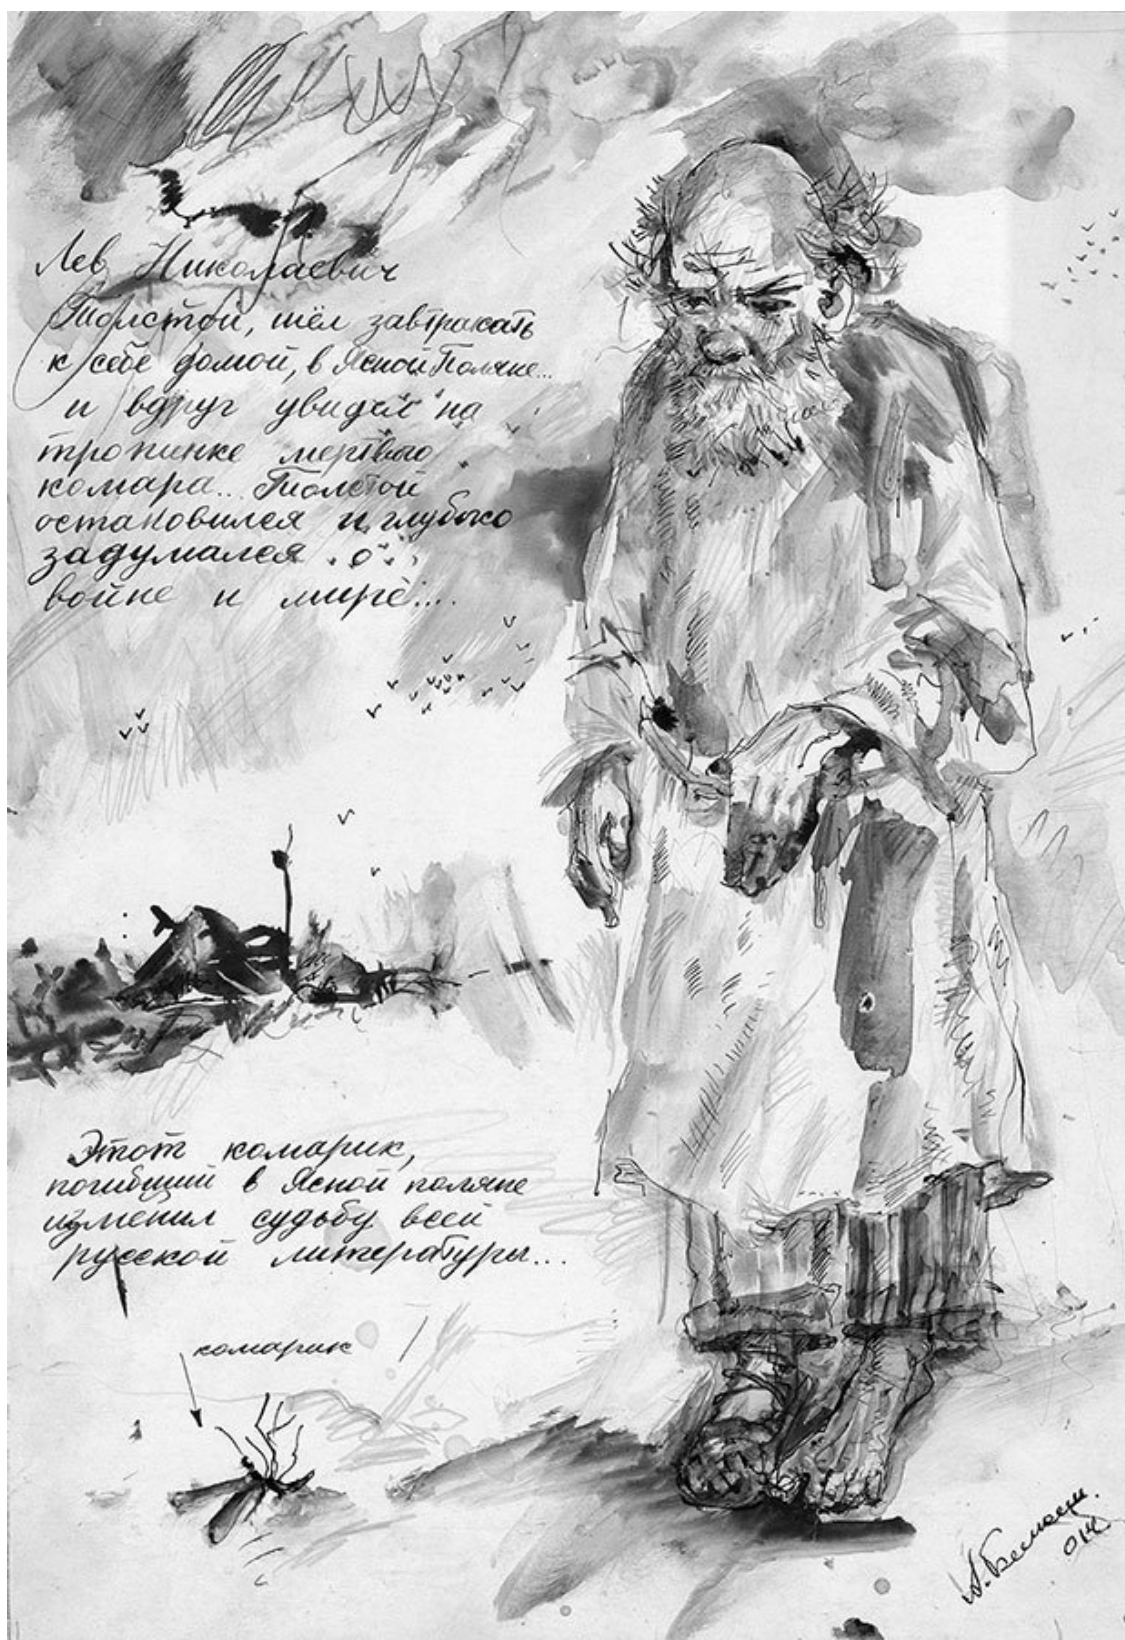 Лев Николаевич
Толстой, шёл завтракать
к себе домой, в Ясной Поляне...
и вдруг увидел на
тропинке мертвого
комара... Толстой
остановился и глубоко
задумался о
войне и мире....
Этот комарик,
погибший в Ясной поляне
изменил судьбу всей
русской литературы...
комарик
014